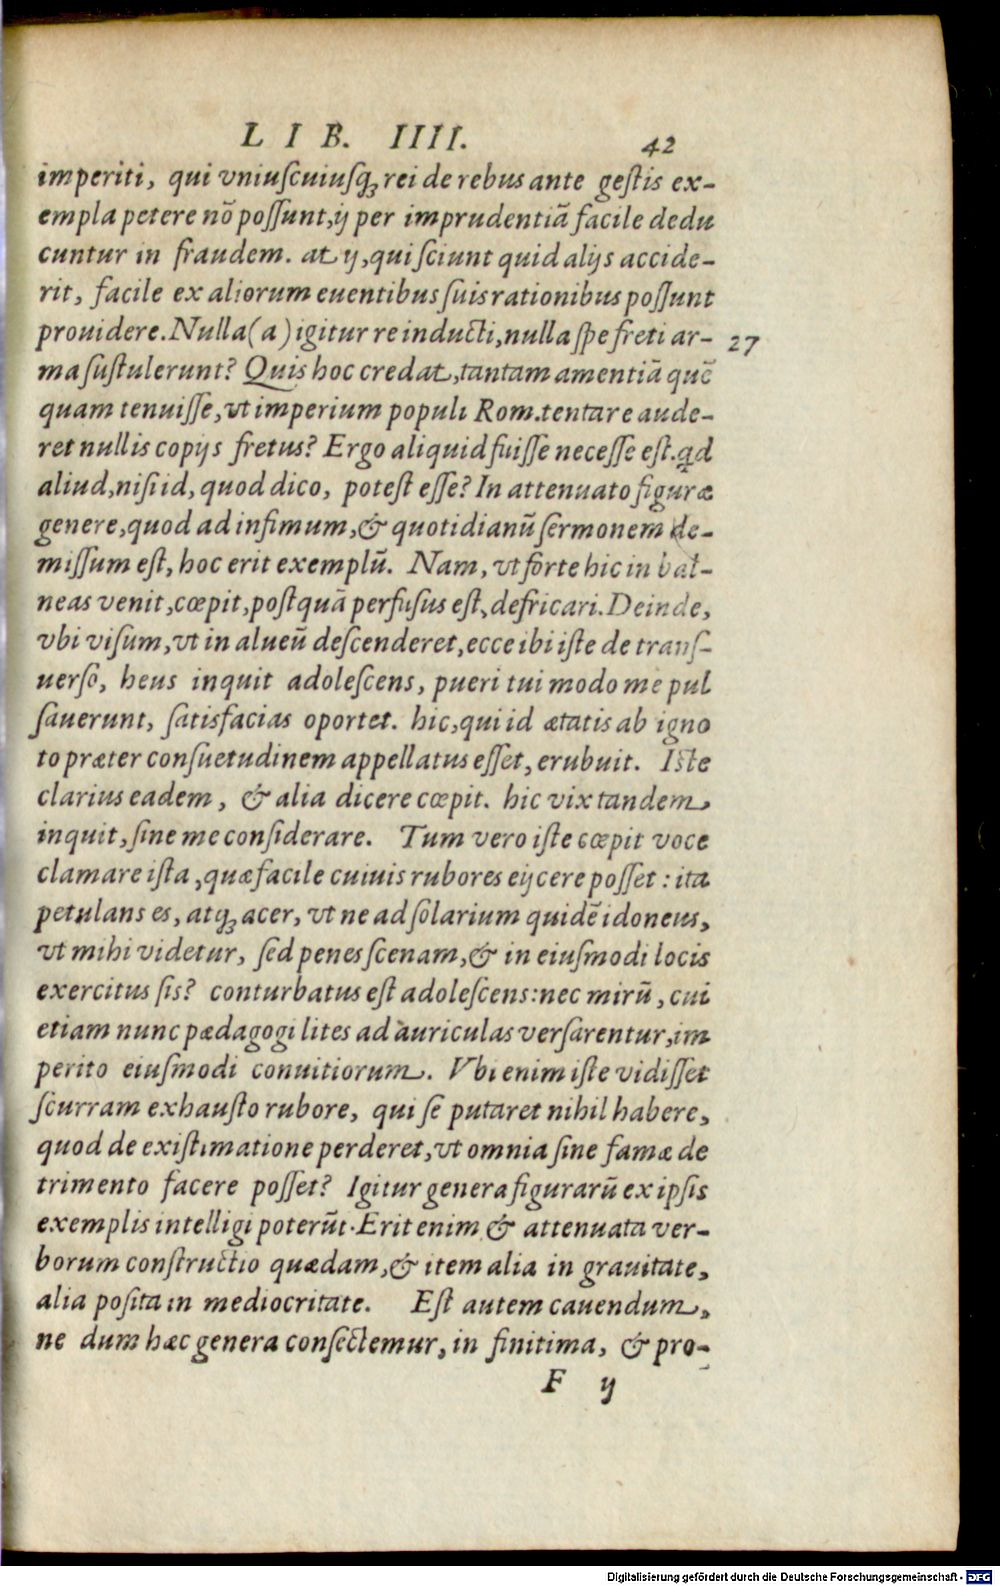 LIB. IIII. 42
imperiti, qui vniuſcuiuſqꝫ rei de rebus ante geſtis ex-
empla petere nõ poſſunt, ij per imprudentiã facile dedu
cuntur in fraudem. at ij, qui ſciunt quid alijs accide-
rit, facile ex aliorum euentibus ſuis rationibus poſſunt
prouidere. Nulla (a) igitur re inducti, nulla ſpe freti ar- 27
ma ſuſtulerunt? Quis hoc credat, tantam amentiã quē
quam tenuiſſe, vt imperium populi Rom. tentare aude-
ret nullis copijs fretus? Ergo aliquid fuiſſe neceſſe eſt. qd
aliud, niſi id, quod dico, poteſt eſſe? In attenuato figuræ
genere, quod ad infimum, & quotidianũ ſermonem de-
miſſum eſt, hoc erit exemplũ. Nam, vt forte hic in bal-
neas venit, cœpit, poſtquã perfuſus eſt, defricari. Deinde,
vbi viſum, vt in alueũ deſcenderet, ecce ibi iſte de tranſ-
uerſo, heus inquit adoleſcens, pueri tui modo me pul
ſauerunt, ſatisfacias oportet. hic, qui id ætatis ab igno
to præter conſuetudinem appellatus eſſet, erubuit. Iſte
clarius eadem, & alia dicere cœpit. hic vix tandem,
inquit, ſine me conſiderare. Tum vero iſte cœpit voce
clamare iſta, quæ facile cuiuis rubores eijcere poſſet: ita
petulans es, atqꝫ acer, vt ne ad ſolarium quidẽ idoneus,
vt mihi videtur, ſed penes ſcenam, & in eiuſmodi locis
exercitus ſis? conturbatus eſt adoleſcens: nec mirũ, cui
etiam nunc pædagogi lites ad auriculas verſarentur, im
perito eiuſmodi conuitiorum. Vbi enim iſte vidiſſet
ſcurram exhauſto rubore, qui ſe putaret nihil habere,
quod de exiſtimatione perderet, vt omnia ſine famæ de
trimento facere poſſet? Igitur genera figurarũ ex ipſis
exemplis intelligi poterũt. Erit enim & attenuata ver-
borum conſtructio quædam, & item alia in grauitate,
alia poſita in mediocritate. Eſt autem cauendum,
ne dum hæc genera conſectemur, in finitima, & pro-
F ij
Digitalisierung gefördert durch die Deutsche Forschungsgemeinschaft - DFG